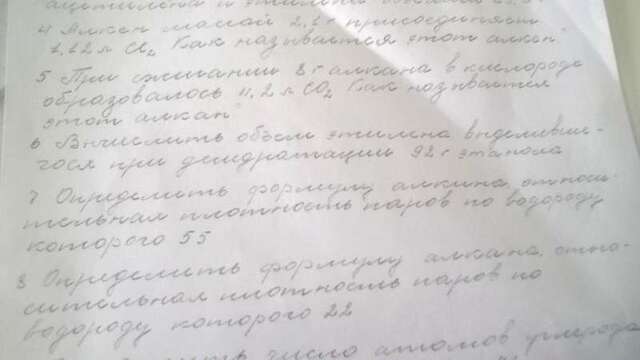 ацетилена и этилена
4 Алкен массой 2,1 г присоединяет
1,12 л Cl₂ Как называется этот алкен
5 При сжигании 8 г алкана в кислороде
образовалось 11,2 л CO₂ Как называется
этот алкан
6 Вычислить объем этилена выделивше-
гося при дегидратации 92 г этанола
7 Определить формулу алкина, относи-
тельная плотность паров по водороду
которого 55
8 Определить формулу алкана, отно-
сительная плотность паров по
водороду которого 22
число атомов углерода